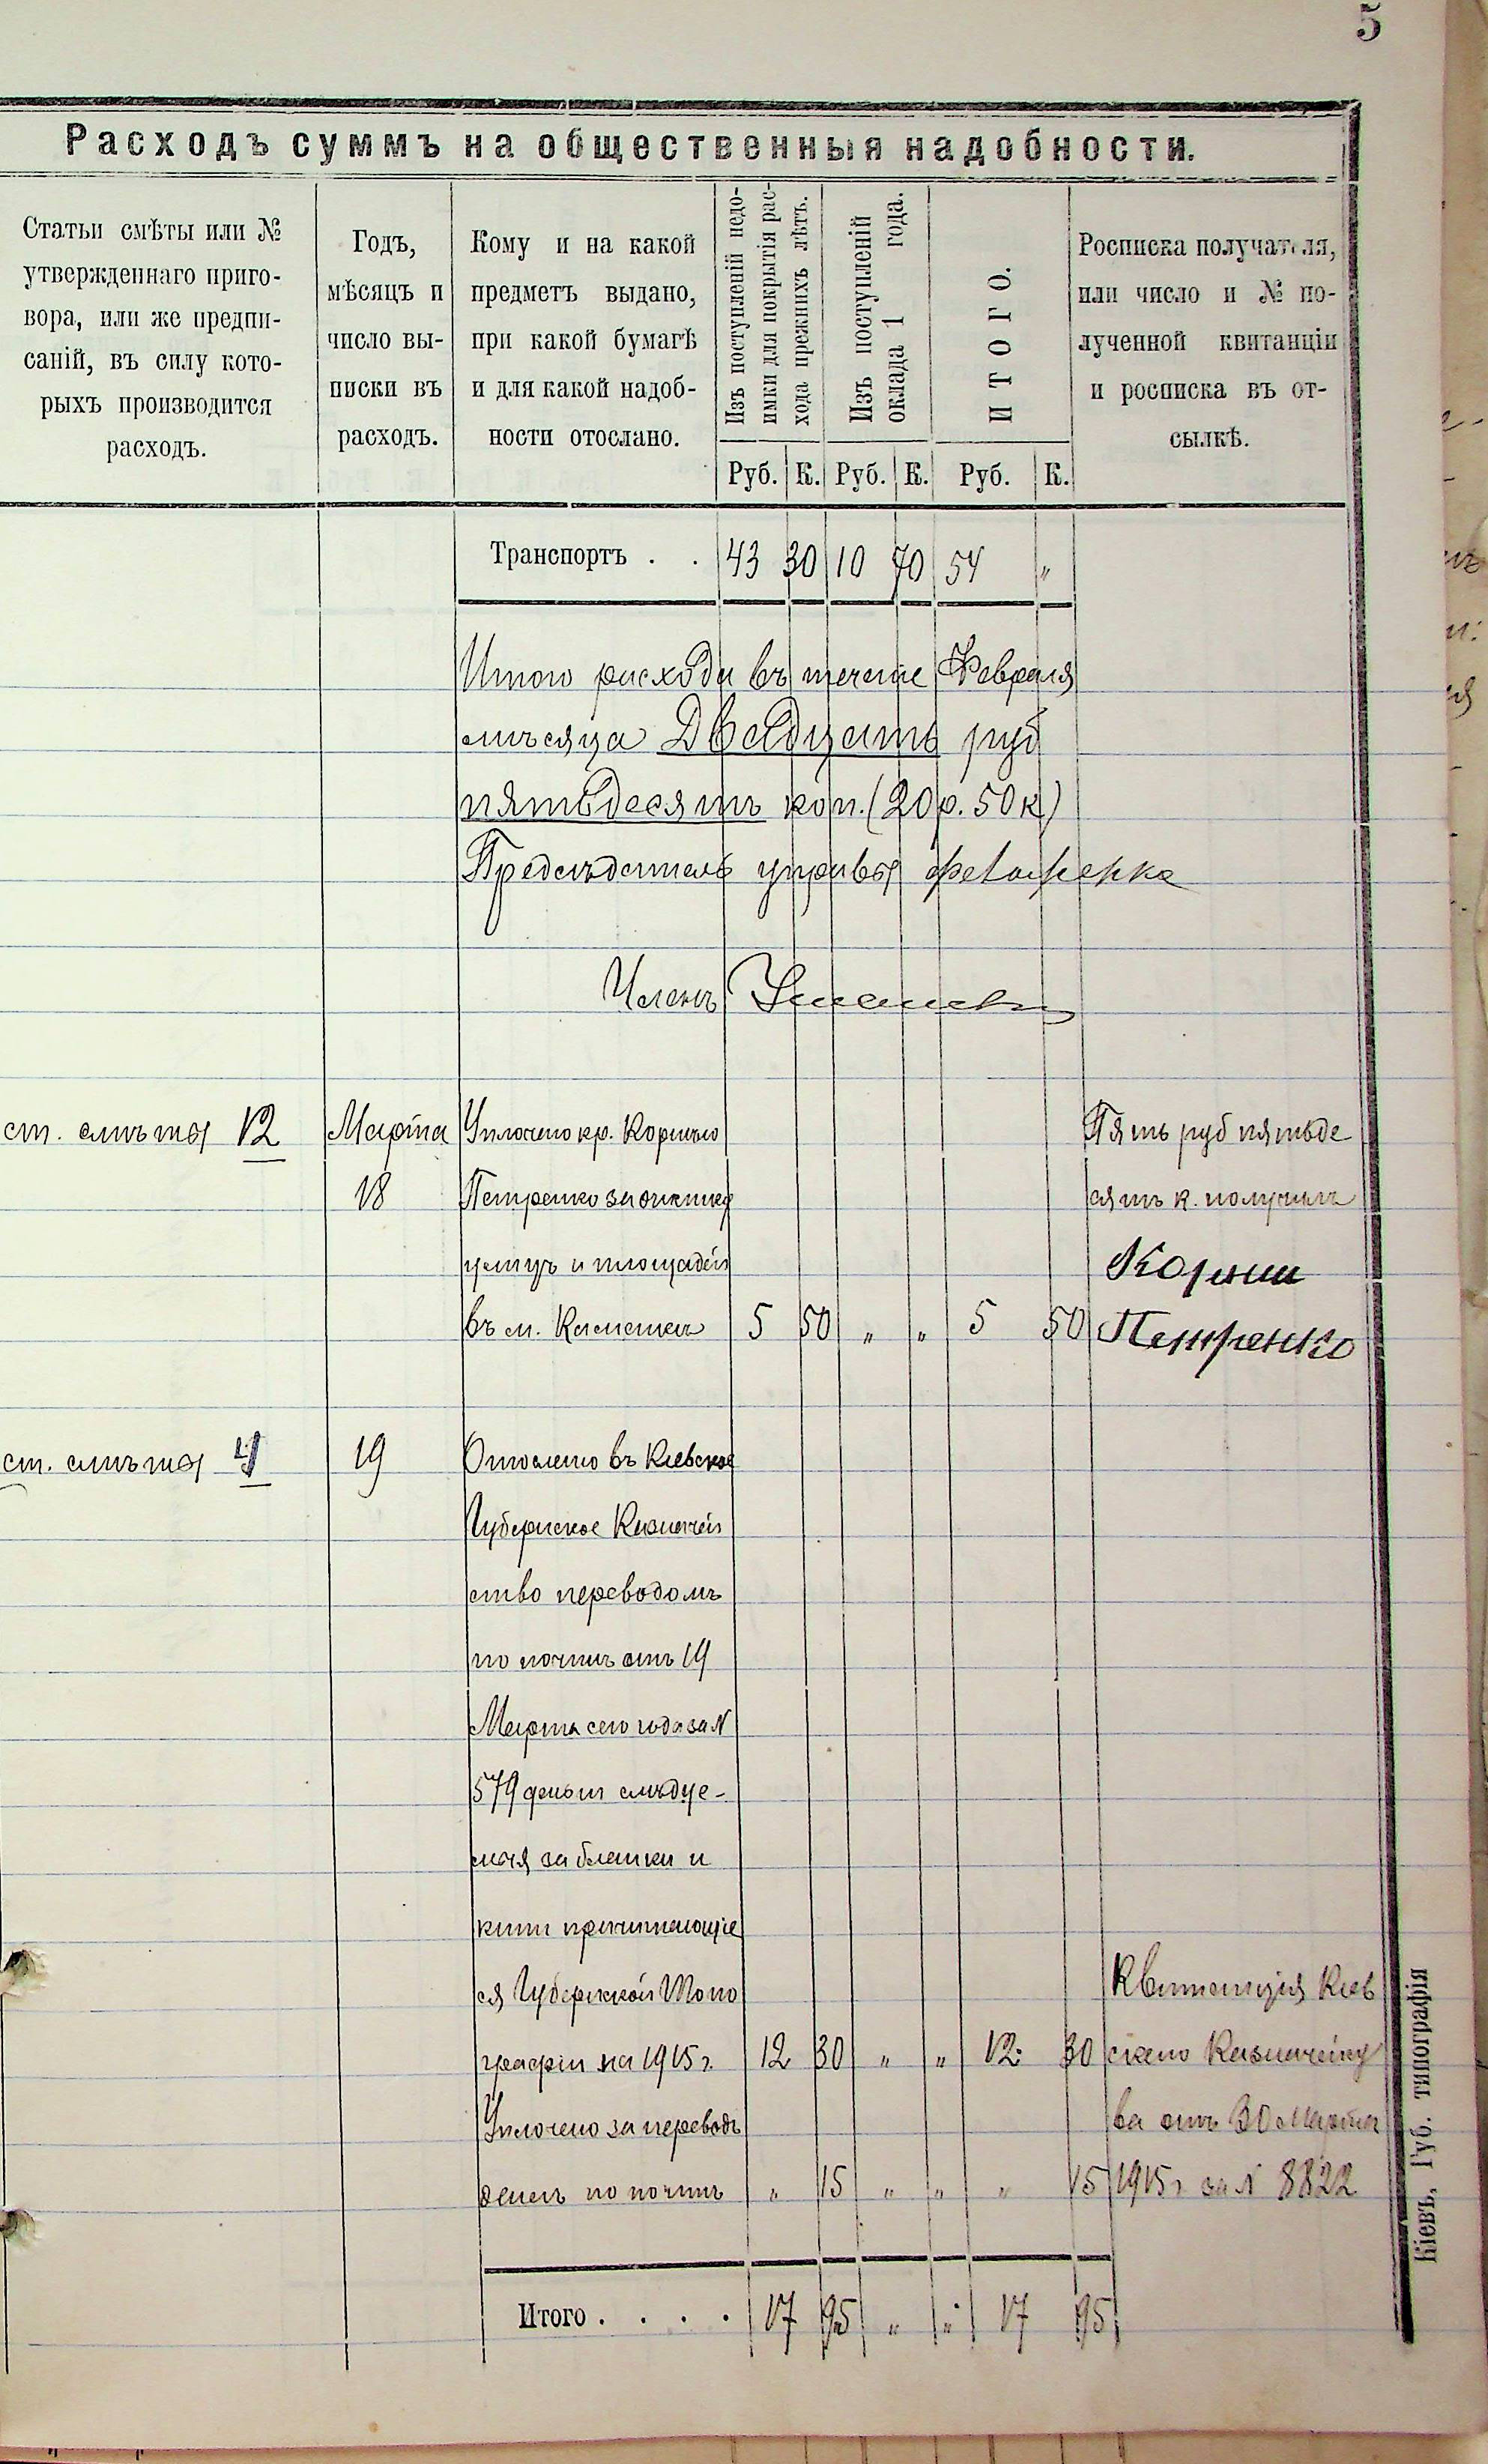 5
Расходъ суммъ на общественныя надобности.
Статьи смѣты или №
утвержденнаго приго-
вора, или же предпи-
саній, въ силу кото-
рыхъ производится
расходъ.
Годъ,
мѣсяцъ и
число вы-
писки въ
расходъ.
Кому и на какой
предметъ выдано,
при какой бумагѣ
и для какой надоб-
ности отослано.
Изъ поступленій недо-
имки для покрытія рас-
хода прежнихъ лѣтъ.
Изъ поступленій
оклада 1 года.
ИТОГО.
Росписка получателя,
или число и № по-
лученной квитанціи
и росписка въ от-
сылкѣ.
Руб. К. Руб. К. Руб. К.
Транспортъ . . 43 30 10 70 54 "
Итого расхода въ течете Февраля
мѣсяца Двадцать руб
пятьдесятъ коп. (20 р. 50 к)
Предсѣдатель управы
Членъ
ст. смѣты 12 Марта Уплочено кр. Корнию Пять руб пятьде
18 Петренко за очистку сятъ к. получилъ
улицъ и площадей Корнии
въ м. 5 50 " " 5 50 Петренко
ст. смѣты 4 19 Отослано въ Киевское
Губернское Казначей
ство переводомъ
по почтѣ отъ 19
Марта сего года за №
579 деньги слѣдуе-
мыя за бланки и
книги причитающіе
ся Губернской Типо Квитанція Киев
графіи на 1915 г. 12 30 " " 12 30 скаго Казначейст
Уплочено за переводъ ва отъ 30 Марта
денегъ по почтѣ " 15 " " " 15 1915 г за № 8822
Итого . . . . 17 95 " " 17 95
Кіевъ, Губ. типографія